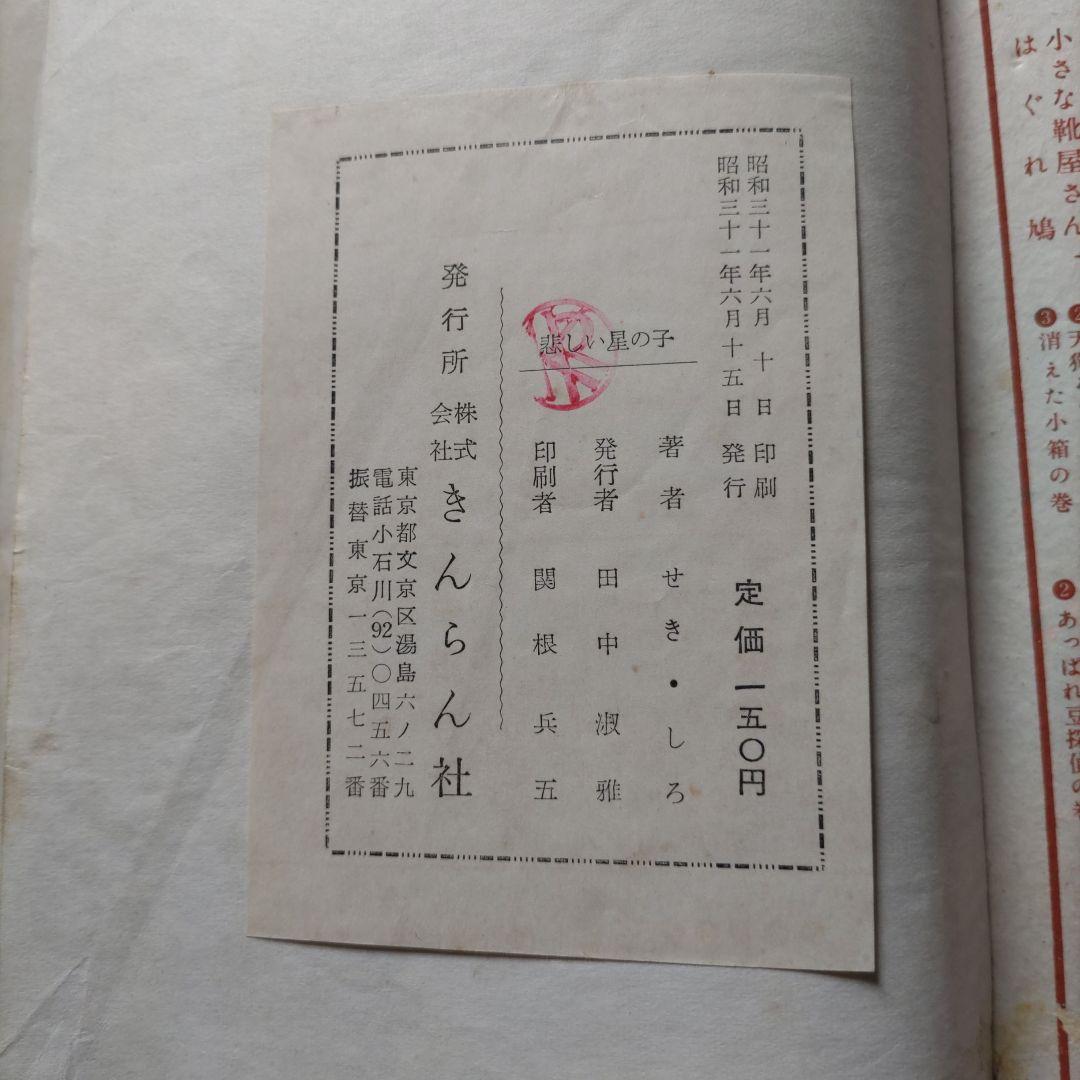 昭和三十一年六月 十 日 印刷
昭和三十一年六月十五日 発行
定価 一五〇円
悲しい星の子
著者 せき・しろ
発行者 田中淑雅
印刷者 関根兵五
発行所 株式会社 きんらん社
東京都文京区湯島六ノ二九
電話小石川(92)〇四五六番
振替東京一三五七二番
小さな靴屋さん
はぐれ鳩
❸消えた小箱の巻
❷あっぱれ豆探偵の巻